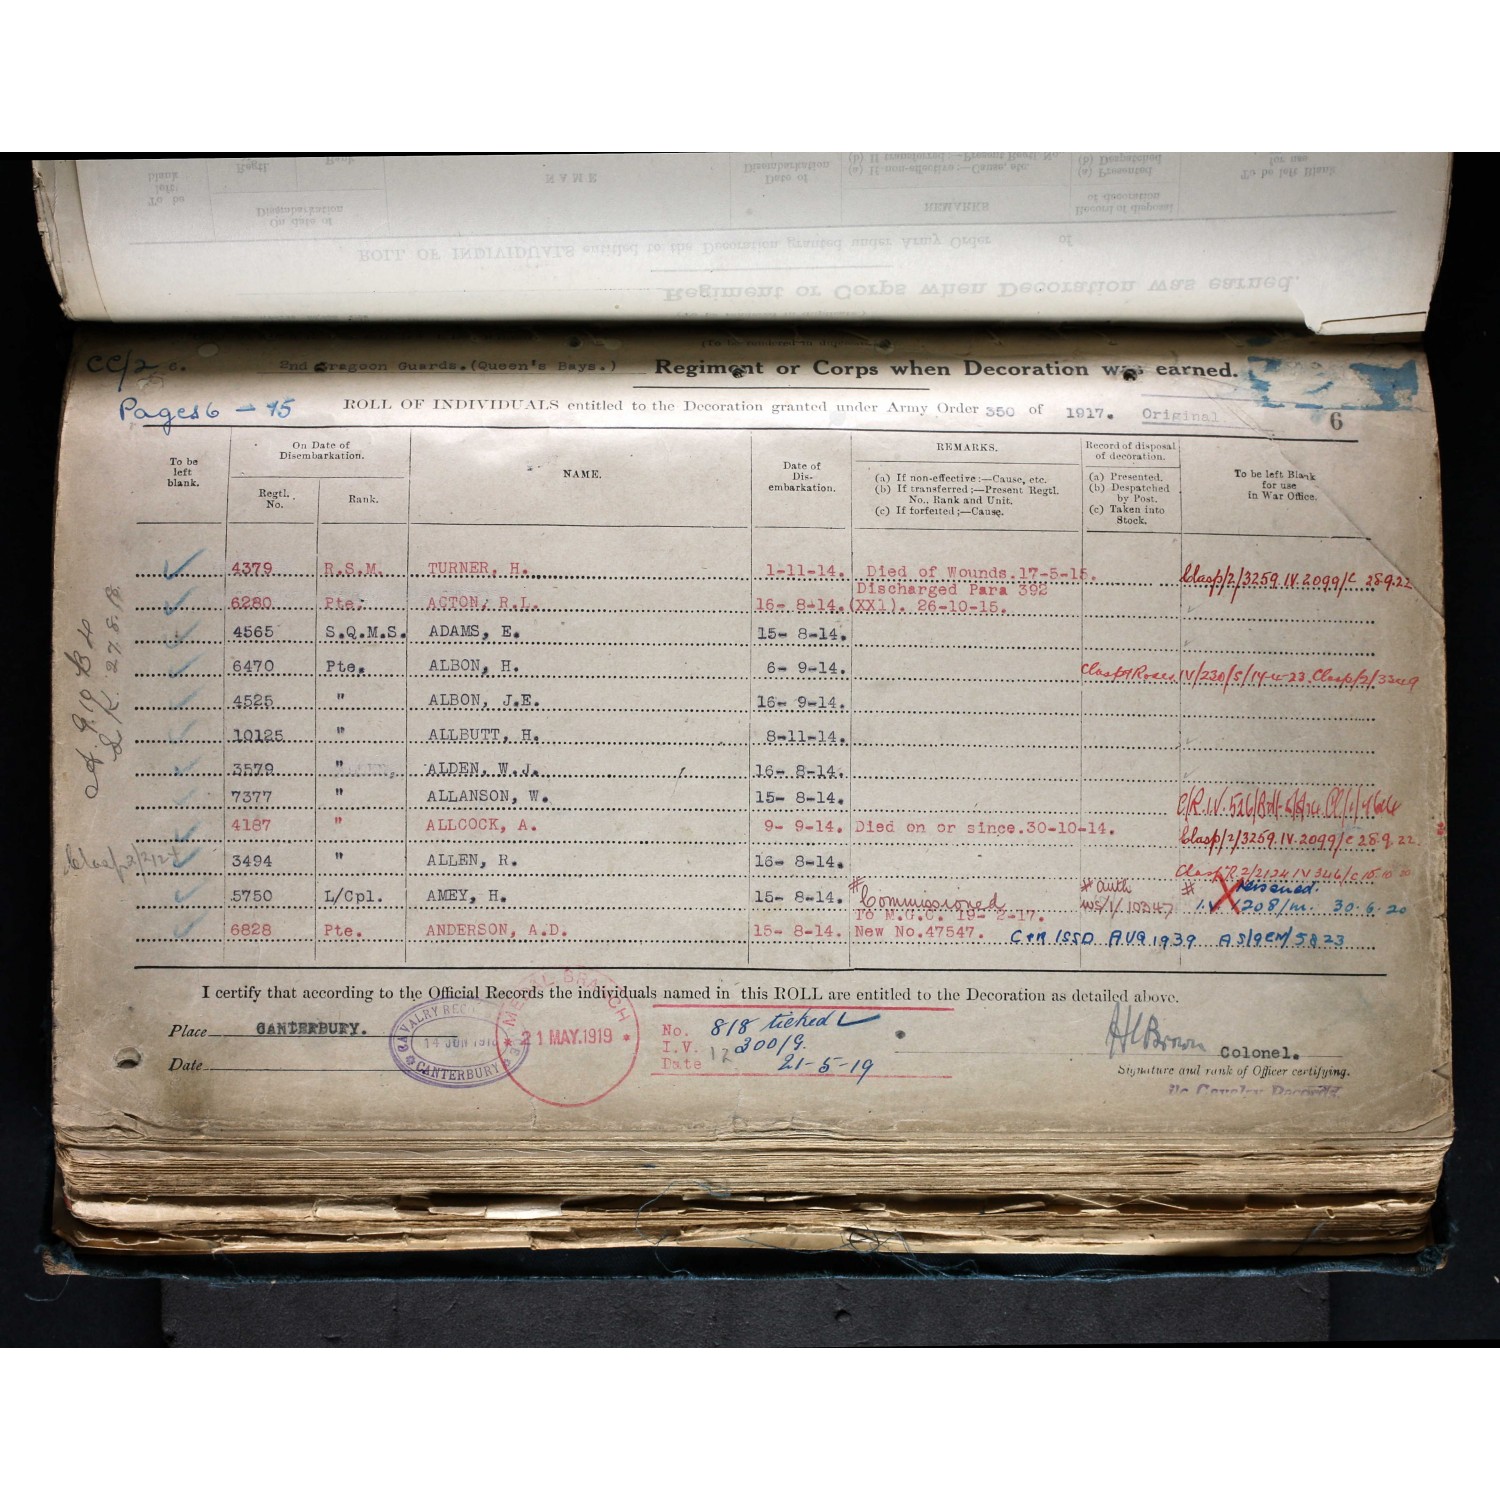 CC/2 c. 2nd Dragoon Guards.(Queen's Bays.) Regiment or Corps when Decoration was earned.
Pages 6 - 15 ROLL OF INDIVIDUALS entitled to the Decoration granted under Army Order 350 of 1917. Original 6
To be left blank.
On Date of Disembarkation.
Regtl. No.
Rank.
NAME.
Date of Dis-embarkation.
REMARKS.
(a) If non-effective:—Cause, etc.
(b) If transferred:—Present Regtl. No., Rank and Unit.
(c) If forfeited;—Cause.
Record of disposal of decoration.
(a) Presented.
(b) Despatched by Post.
(c) Taken into Stock.
To be left Blank for use in War Office.
4379 R.S.M. TURNER, H. 1-11-14. Died of Wounds.17-5-15. Clasp/2/3259.IV.2099/C 28.9.22
6280 Pte. ACTON, R.L. 16- 8-14. Discharged Para 392
(XXi). 26-10-15.
4565 S.Q.M.S. ADAMS, E. 15- 8-14.
6470 Pte. ALBON, H. 6- 9-14. Clasp & Roses IV/230/5/14-4-23. Clasp/2/3349
4525 " ALBON, J.E. 16- 9-14.
10125 " ALLBUTT, H. 8-11-14.
3579 " ALDEN, W.J. 16- 8-14.
7377 " ALLANSON, W. 15- 8-14.
4187 " ALLCOCK, A. 9- 9-14. Died on or since.30-10-14. Clasp/2/3259.IV.2099/C 28.9.22.
3494 " ALLEN, R. 16- 8-14.
5750 L/Cpl. AMEY, H. 15- 8-14. # Commissioned # auth # IV 1208/m. 30.6.20
6828 Pte. ANDERSON, A.D. 15- 8-14. To M.G.C. 19- 2-17.
New No.47547. C&R ISSD AUG 1939 AS/9EM/5823
I certify that according to the Official Records the individuals named in this ROLL are entitled to the Decoration as detailed above.
Place CANTERBURY.
Date
CAVALRY REC
CANTERBURY
MEDAL BRANCH
21 MAY.1919
No. 818 ticked
I.V. 300/9.
Date 21-5-19
H Brown Colonel.
Signature and rank of Officer certifying.
i/c Cavalry Records.